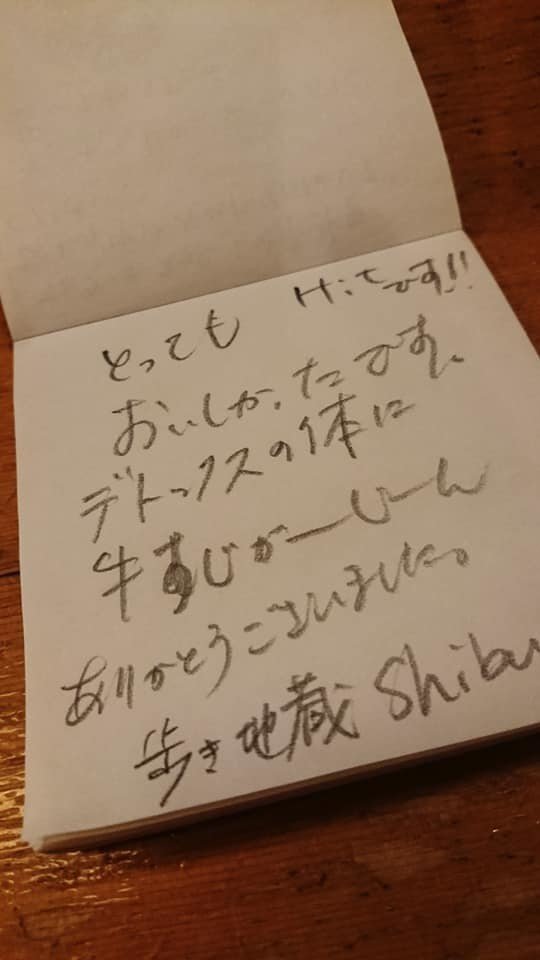 とっても Hitです!!
おいしかったです。
デトックスの体に
牛すじがーじーん
ありがとうございました。
歩き地蔵 Shibu